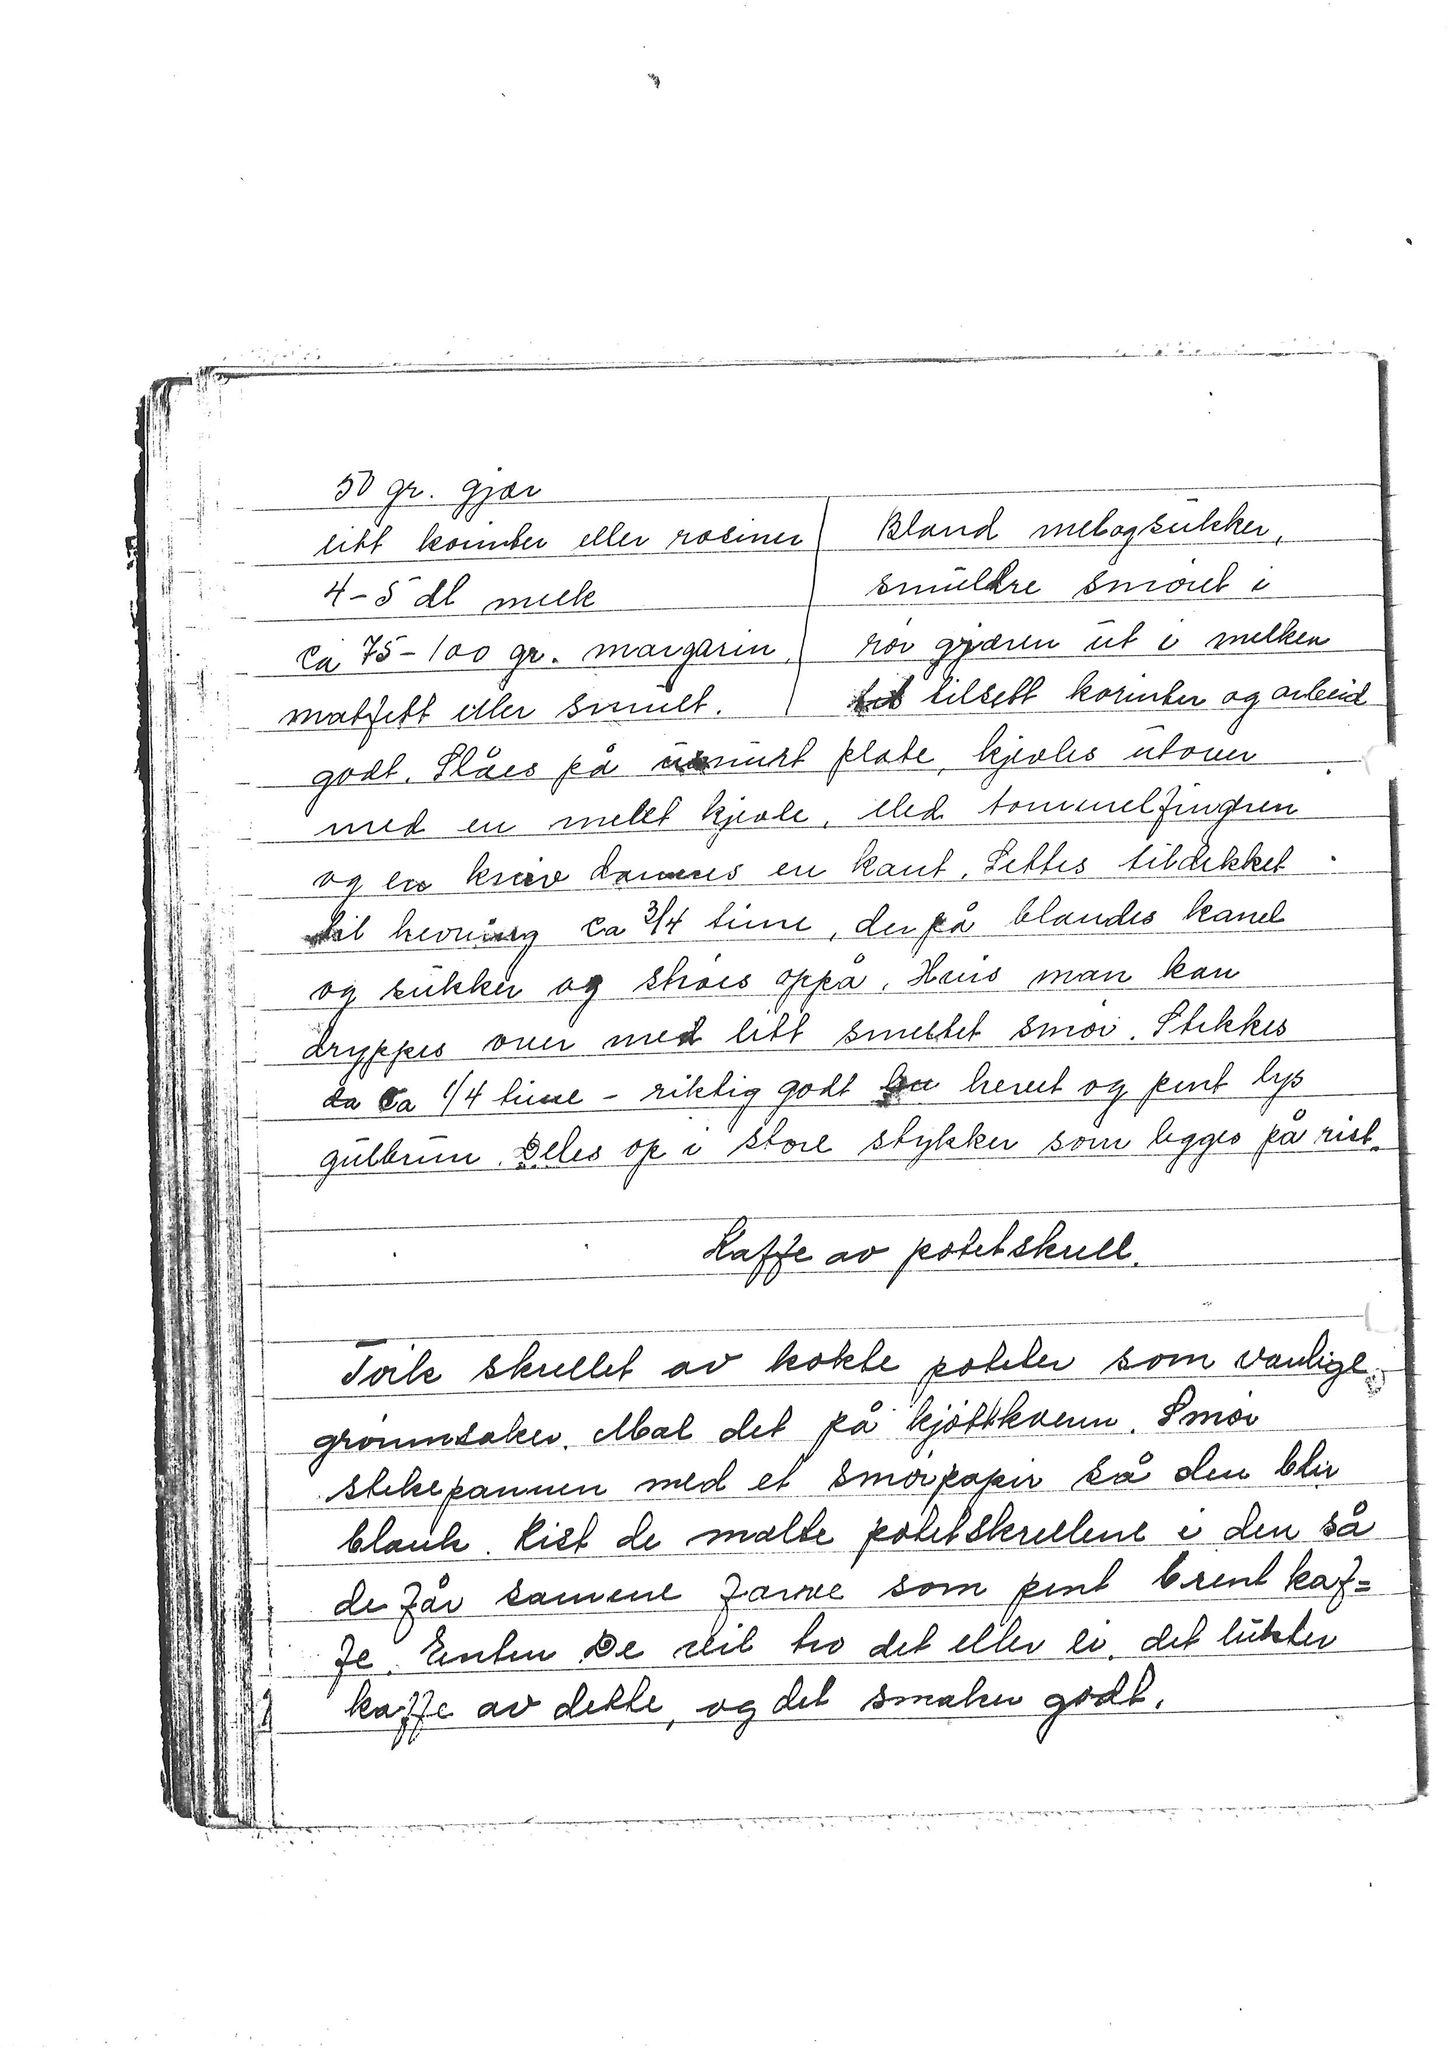 50 gr. gjær
litt korinter eller rosiner
4-5 dl melk
ca 75-100 gr. margarin,
matfett eller smult.
Bland mel og sukker,
smuldre smöret i
rör gjæren ut i melken
tilsett korinter og arbeid
godt. Slåes på usmurt plate, kjevles utover
med en melet kjevle. Med tommelfingren
og en kniv dannes en kant. Settes tildekket
til hevning ca 3/4 time, derpå blandes kanel
og sukker og ströes oppå. Hvis man kan
dryppes over med litt smeltet smör. Stekkes
da ca 1/4 time - riktig godt hevet og pent lys
gulbrun. Deles op i store stykker som legges på rist.
Kaffe av potetskrell.
Törk skrellet av kokte poteter som vanlige
grönnsaker. Mal det på kjöttkvern. Smör
stekepannen med et smörpapir så den blir
blank. Rist de malte potetskrellene i den så
de får samme farve som pent brent kaf=
fe. Enten De vil tro det eller ei, det lukter
kaffe av dette, og det smaker godt.